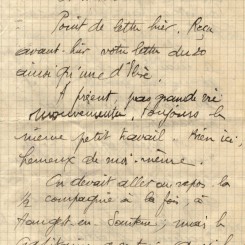 Point de lettre hier. Reçu
avant-hier votre lettre du 20
ainsi qu'une d'
A présent, pas grande vie
mouvementée, toujours le
même petit travail rien ici,
heureux de moi-même.
On devait aller au repos la
½ compagnie à la fois, à
en Santerre, mais l'